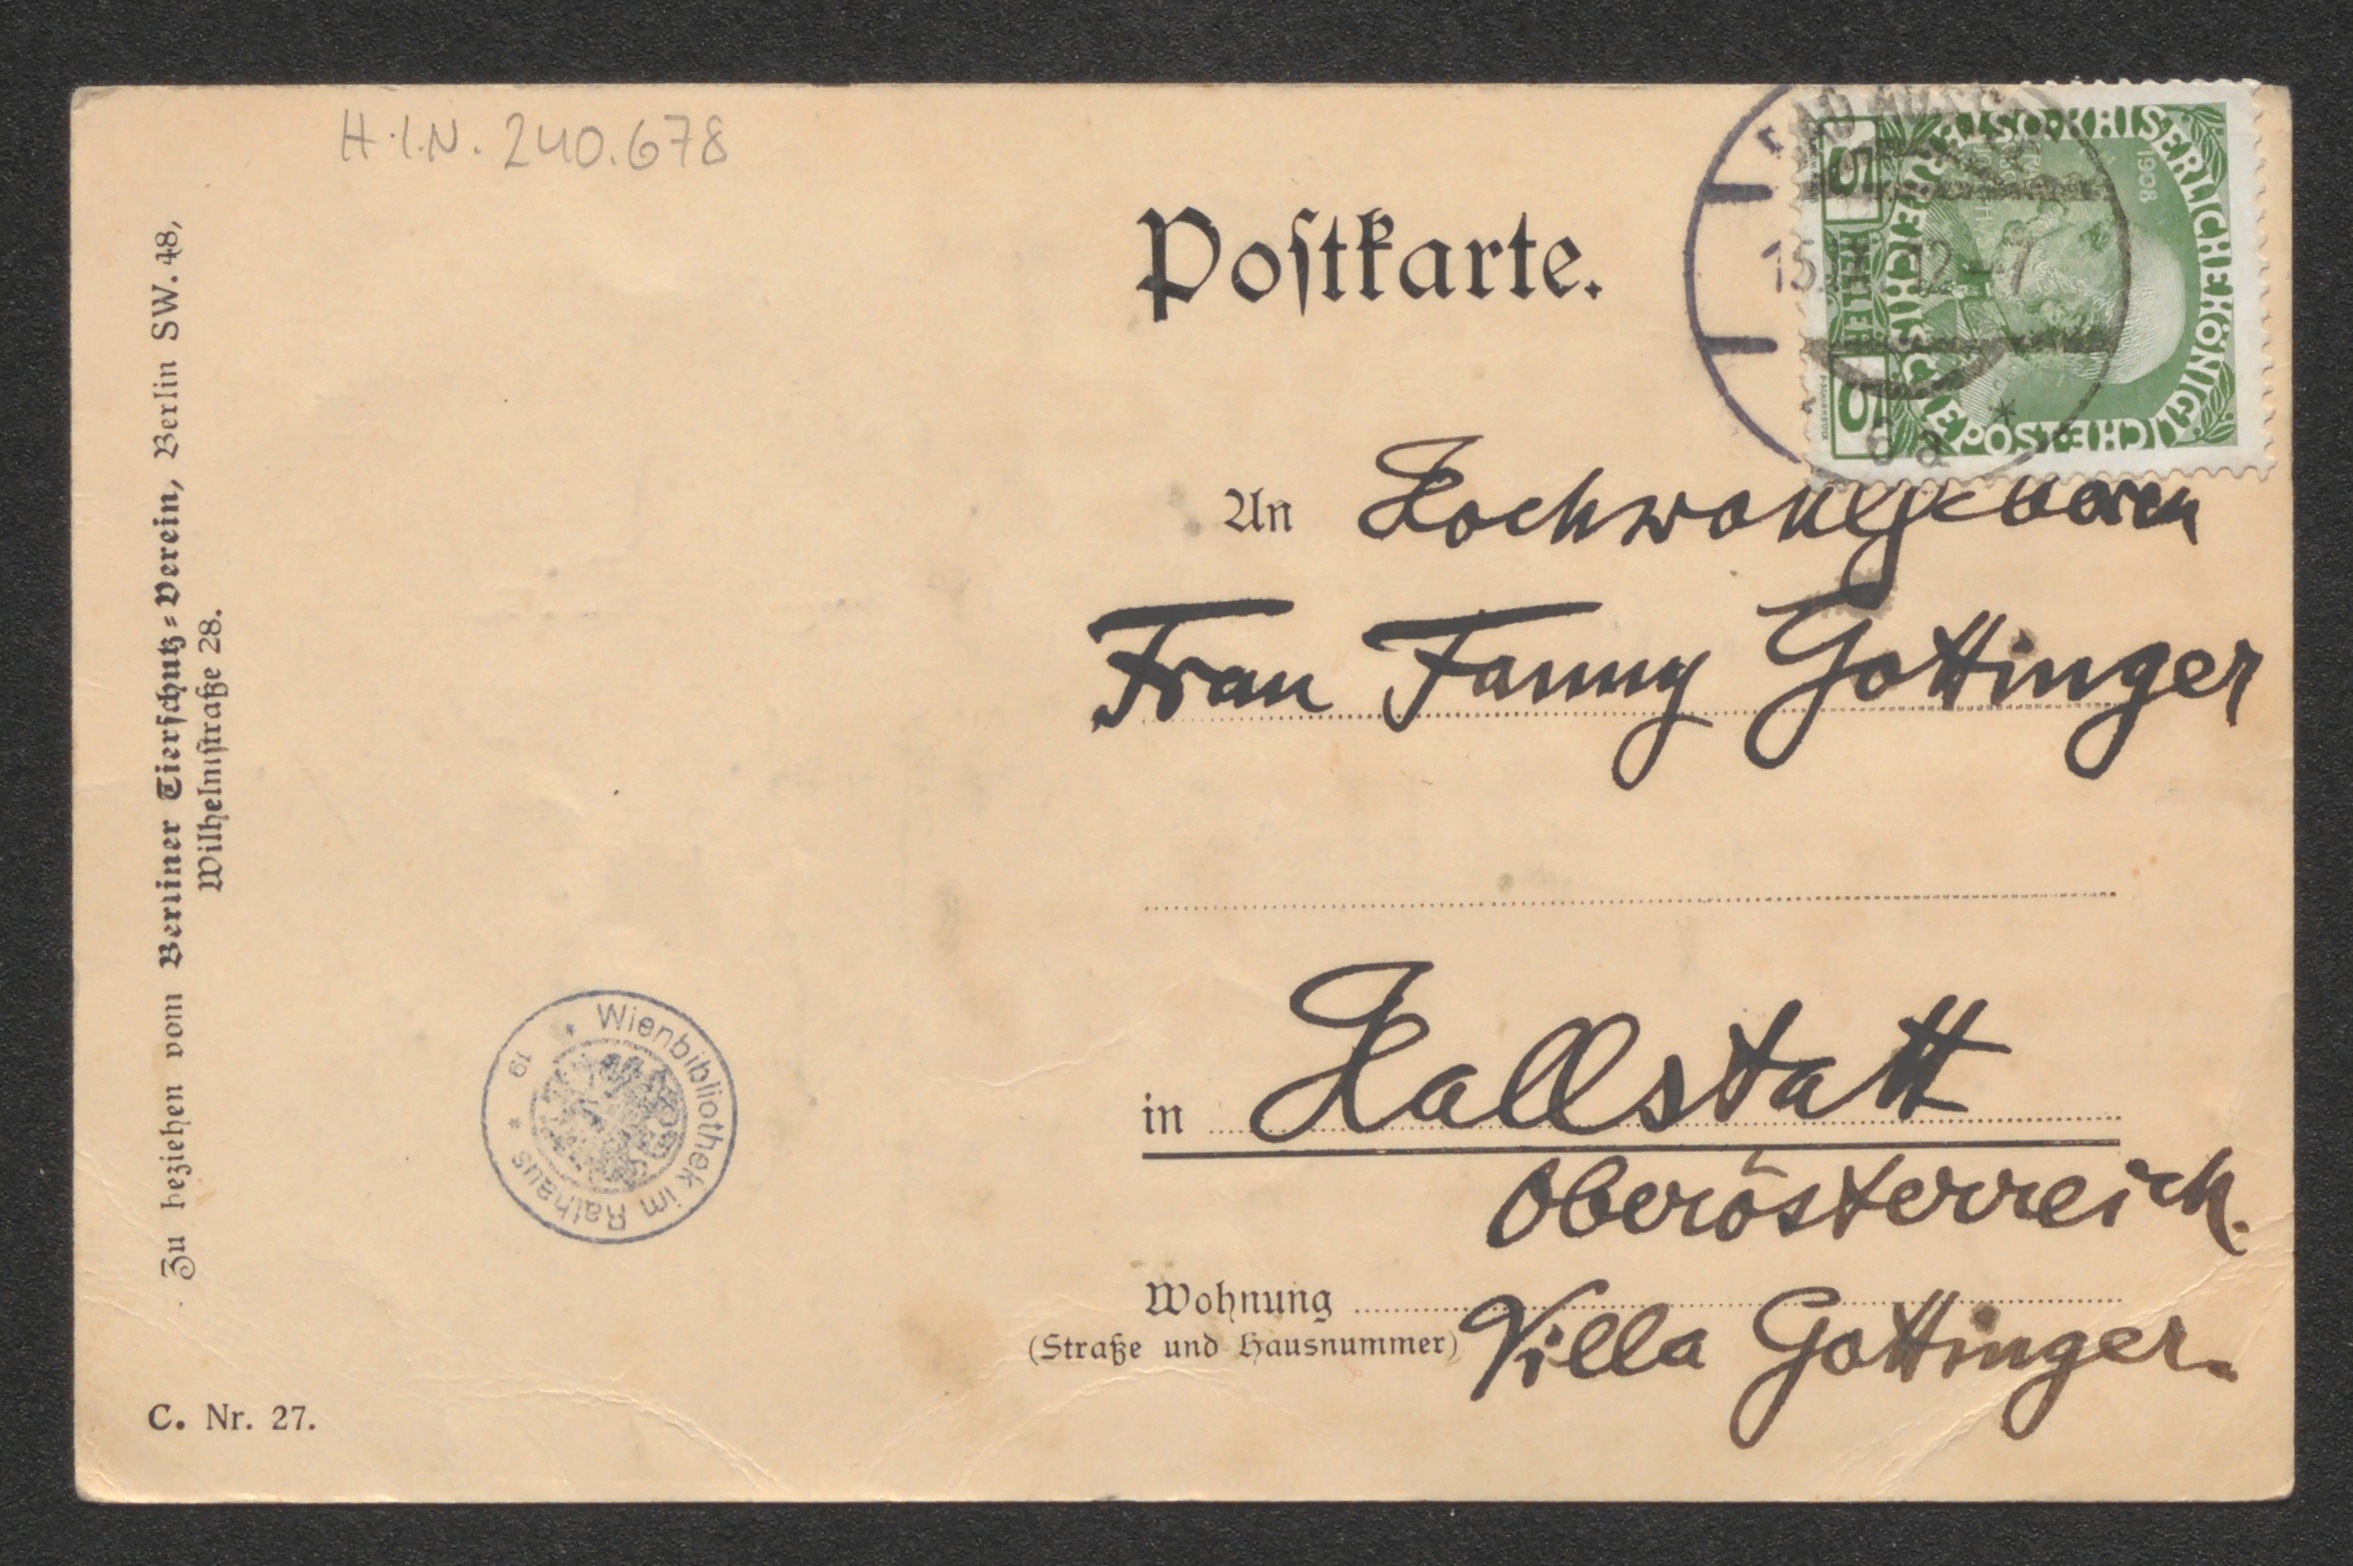 H.I.N. 240.678
Zu beziehen vom Berliner Tierschutz-Verein, Berlin SW. 48,
Wilhelmstraße 28.
Postkarte.
1908
5
HELLER
5
15. 12-7
6a
*
An Hochwohlgeboren
Frau Fanny Gottinger
in Hallstatt
Oberösterreich.
Wohnung
(Straße und Hausnummer) Villa Gottinger.
* Wienbibliothek im Rathaus *
19
C. Nr. 27.